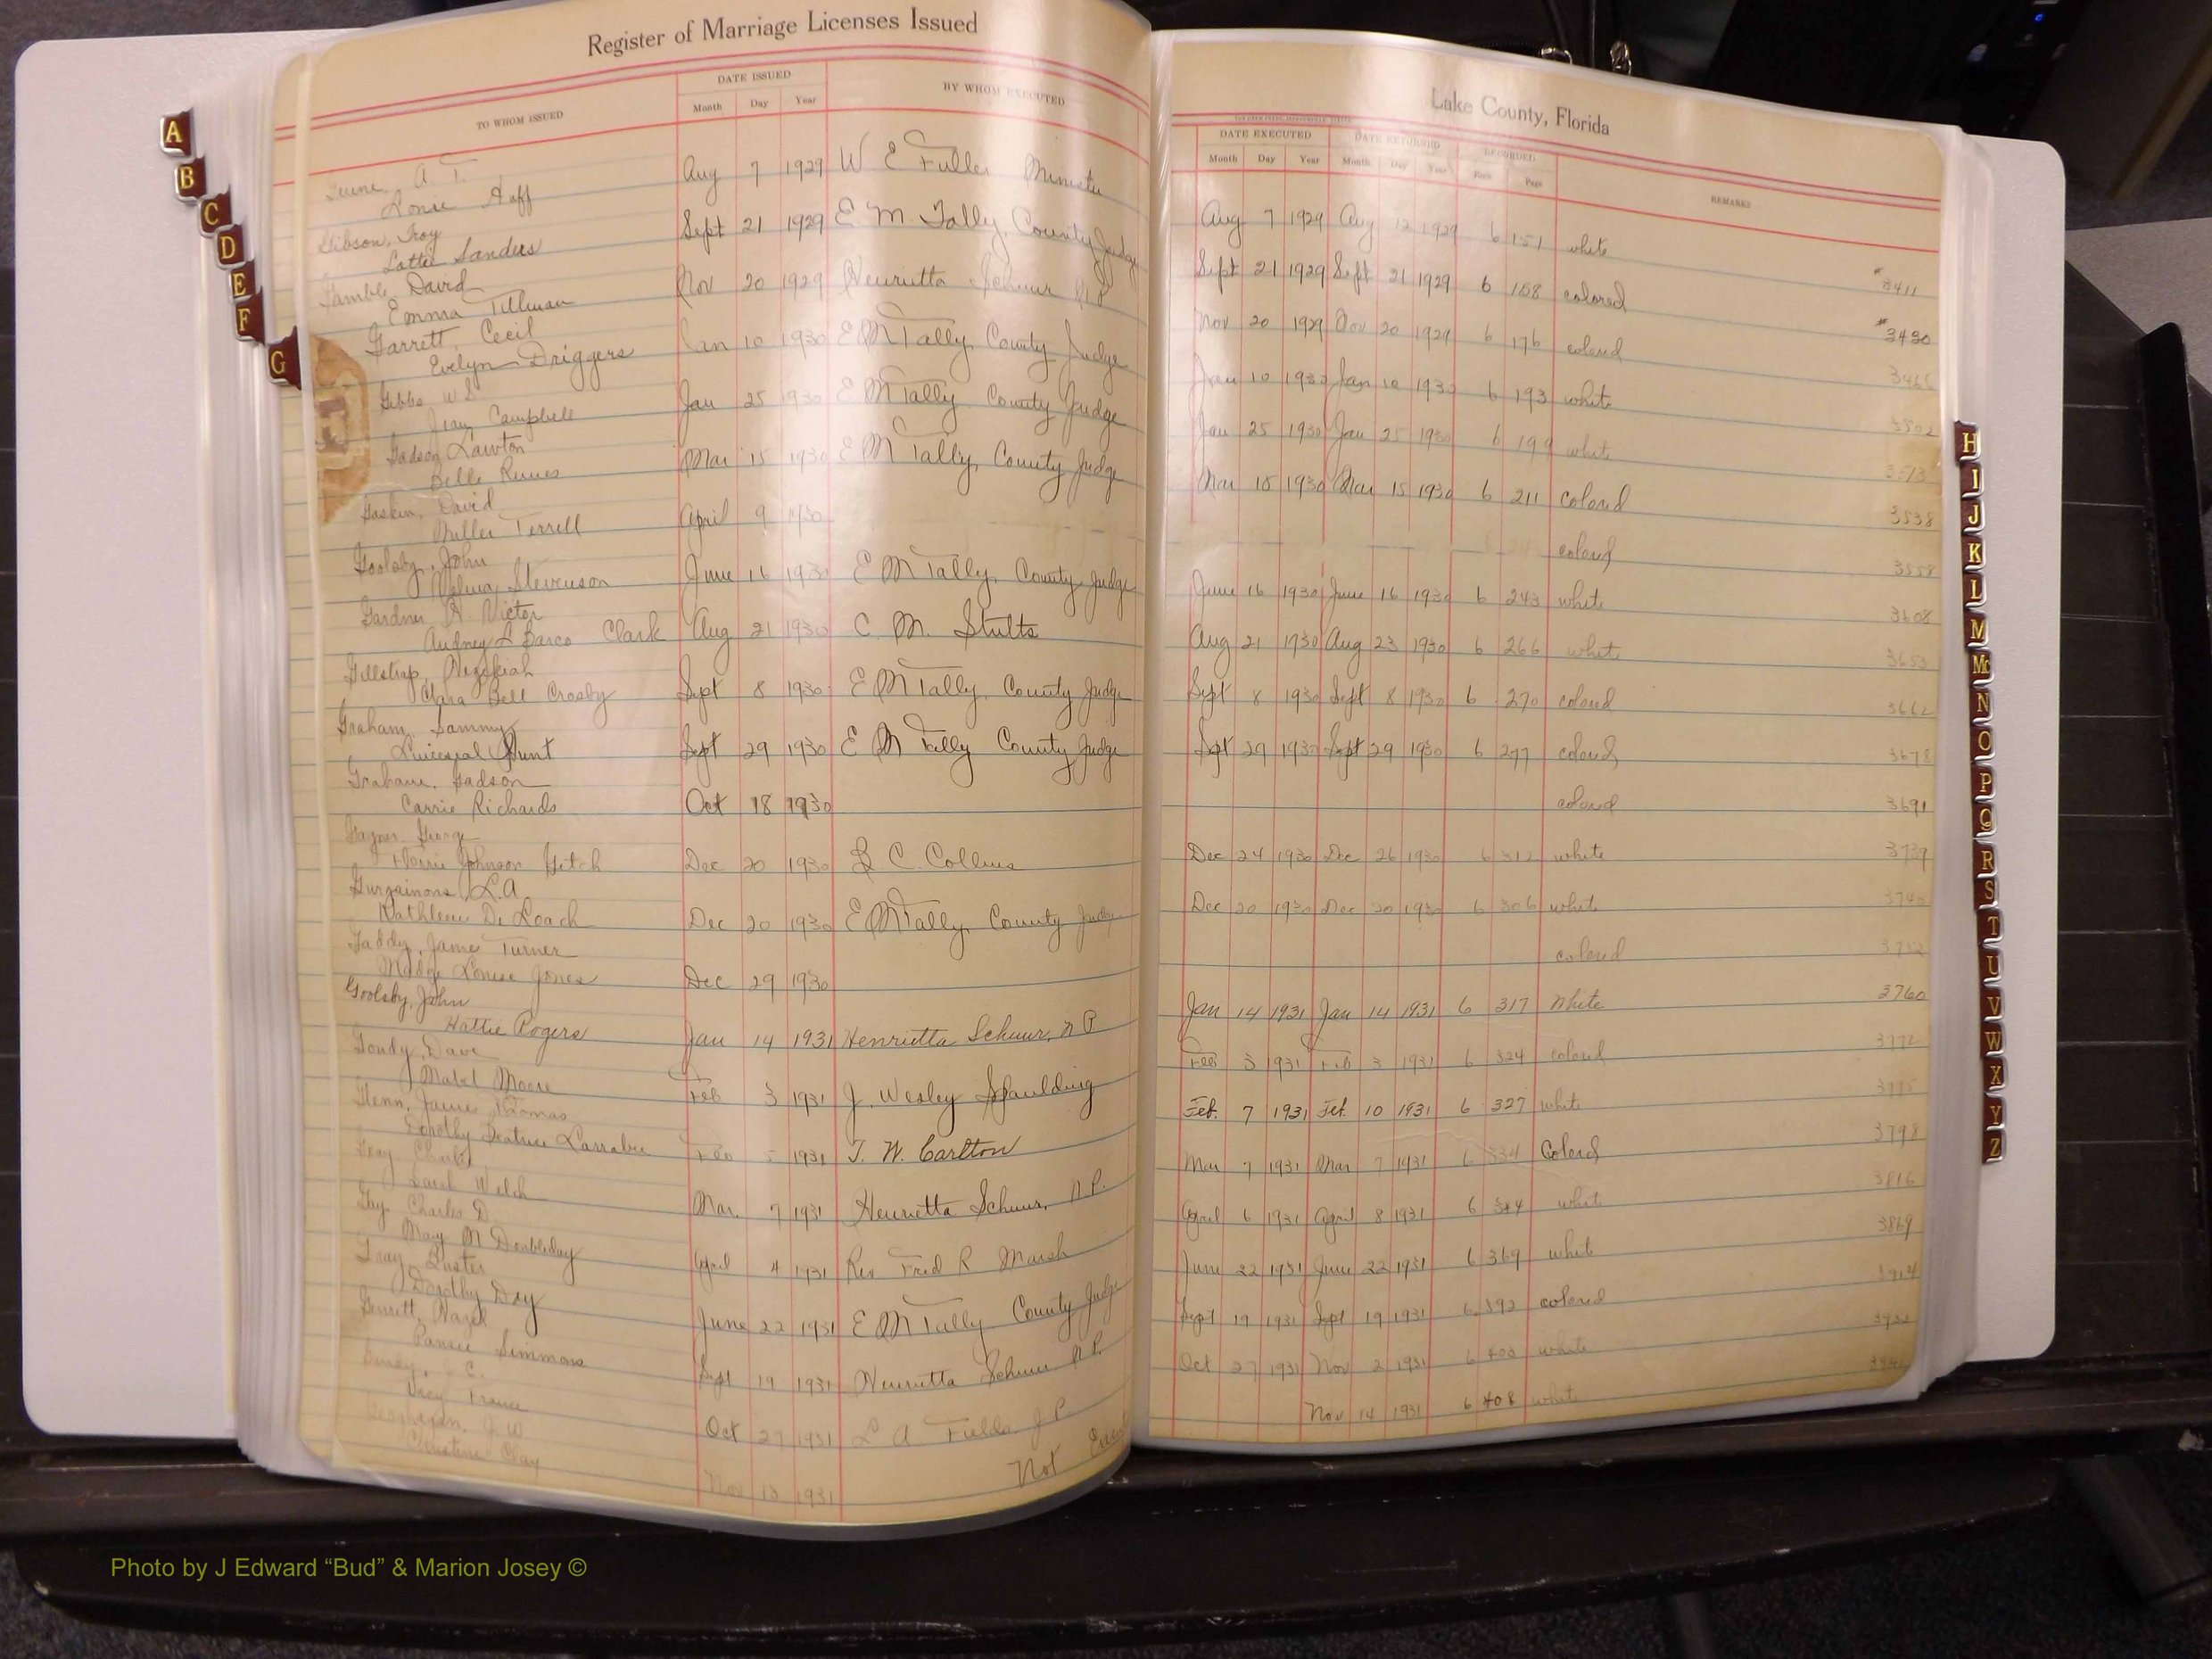 Register of Marriage Licenses Issued
TO WHOM ISSUED
DATE ISSUED
Month Day Year
BY WHOM EXECUTED
A T.
Lonie Huff
Aug 7 1929 W E Fuller Minister
Gibson, Troy
Lottie Sanders
Sept 21 1929 E M Tally, County Judge
Gamble, David
Emma Tillman
Nov 20 1929 Henrietta Schuur N P
Garrett, Cecil
Evelyn Driggers
Jan 10 1930 E M Tally, County Judge
Gibbs W S
Jean Campbell
Jan 25 1930 E M Tally County Judge
Gadson Lawton
Belle
Mar 15 1930 E M Tally, County Judge
Gaskin, David
Terrell
April 9 1930
Goolsby, John
Stevenson
June 16 1930 E M Tally, County Judge
Gardner, Victor
Audrey L Barco Clark
Aug 21 1930 C. M. Stults
Gillstrap, Hezekiah
Clara Bell Crosby
Sept 8 1930 E M Tally, County Judge
Graham, Sammy
Sept 29 1930 E M Tally County Judge
Graham, Gadson
Carrie Richards
Oct 18 1930
George
Johnson
Dec 20 1930 C. Collins
L.A.
Kathleen De Loach
Dec 20 1930 E M Tally, County Judge
Gaddy, James Turner
Madge Louise Jones
Dec 29 1930
Goolsby, John
Hattie Rogers
Jan 14 1931 Henrietta Schuur, N P
Dave
Mabel Moore
Feb 3 1931 J. Wesley Spaulding
Glenn, James Thomas
Dorothy Beatrice Larrabee
Feb 5 1931 T. W. Carlton
Gray, Charles
Sarah Welch
Mar. 7 1931 Henrietta Schuur, N.P.
Gay, Charles D.
Mary M Doubleday
April 4 1931 Rev Fred R Marsh
Gray, Buster
Dorothy Day
June 22 1931 E M Tally County Judge
Simmons
Sept 19 1931 Henrietta Schuur N.P.
Oct 27 1931 L A Fields J P
J W
Christine Clay
Nov 13 1931 Not
Lake County, Florida
DATE EXECUTED
DATE RETURNED
RECORDED
Month Day Year Month Day Year Book Page
REMARKS
Aug 7 1929 Aug 12 1929 6 151 white
#3411
Sept 21 1929 Sept 21 1929 6 158 colored
#3430
Nov 20 1929 Nov 20 1929 6 176 colored
Jan 10 1930 Jan 10 1930 6 193 white
3502
Jan 25 1930 Jan 25 1930 6 199 white
3513
Mar 15 1930 Mar 15 1930 6 211 colored
3538
colored
3558
June 16 1930 June 16 1930 6 243 white
3608
Aug 21 1930 Aug 23 1930 6 266 white
3653
Sept 8 1930 Sept 8 1930 6 270 colored
3662
Sept 29 1930 Sept 29 1930 6 277 colored
3678
colored
3691
Dec 24 1930 Dec 26 1930 6 312 white
3739
Dec 20 1930 Dec 20 1930 6 306 white
3740
colored
3752
Jan 14 1931 Jan 14 1931 6 317 White
3760
Feb 3 1931 Feb 3 1931 6 324 colored
3772
Feb. 7 1931 Feb. 10 1931 6 327 white
3775
Mar 7 1931 Mar 7 1931 6 334 Colored
3798
April 6 1931 April 8 1931 6 344 white
3816
June 22 1931 June 22 1931 6 369 white
3869
Sept 19 1931 Sept 19 1931 6 392 colored
3914
Oct 27 1931 Nov 2 1931 6 403 white
Nov 14 1931 6 408 white
A
B
C
D
E
F
G
H
I
J
K
L
M
Mc
N
O
P
Q
R
S
T
U
V
W
X
Y
Z
Photo by J Edward “Bud” & Marion Josey ©